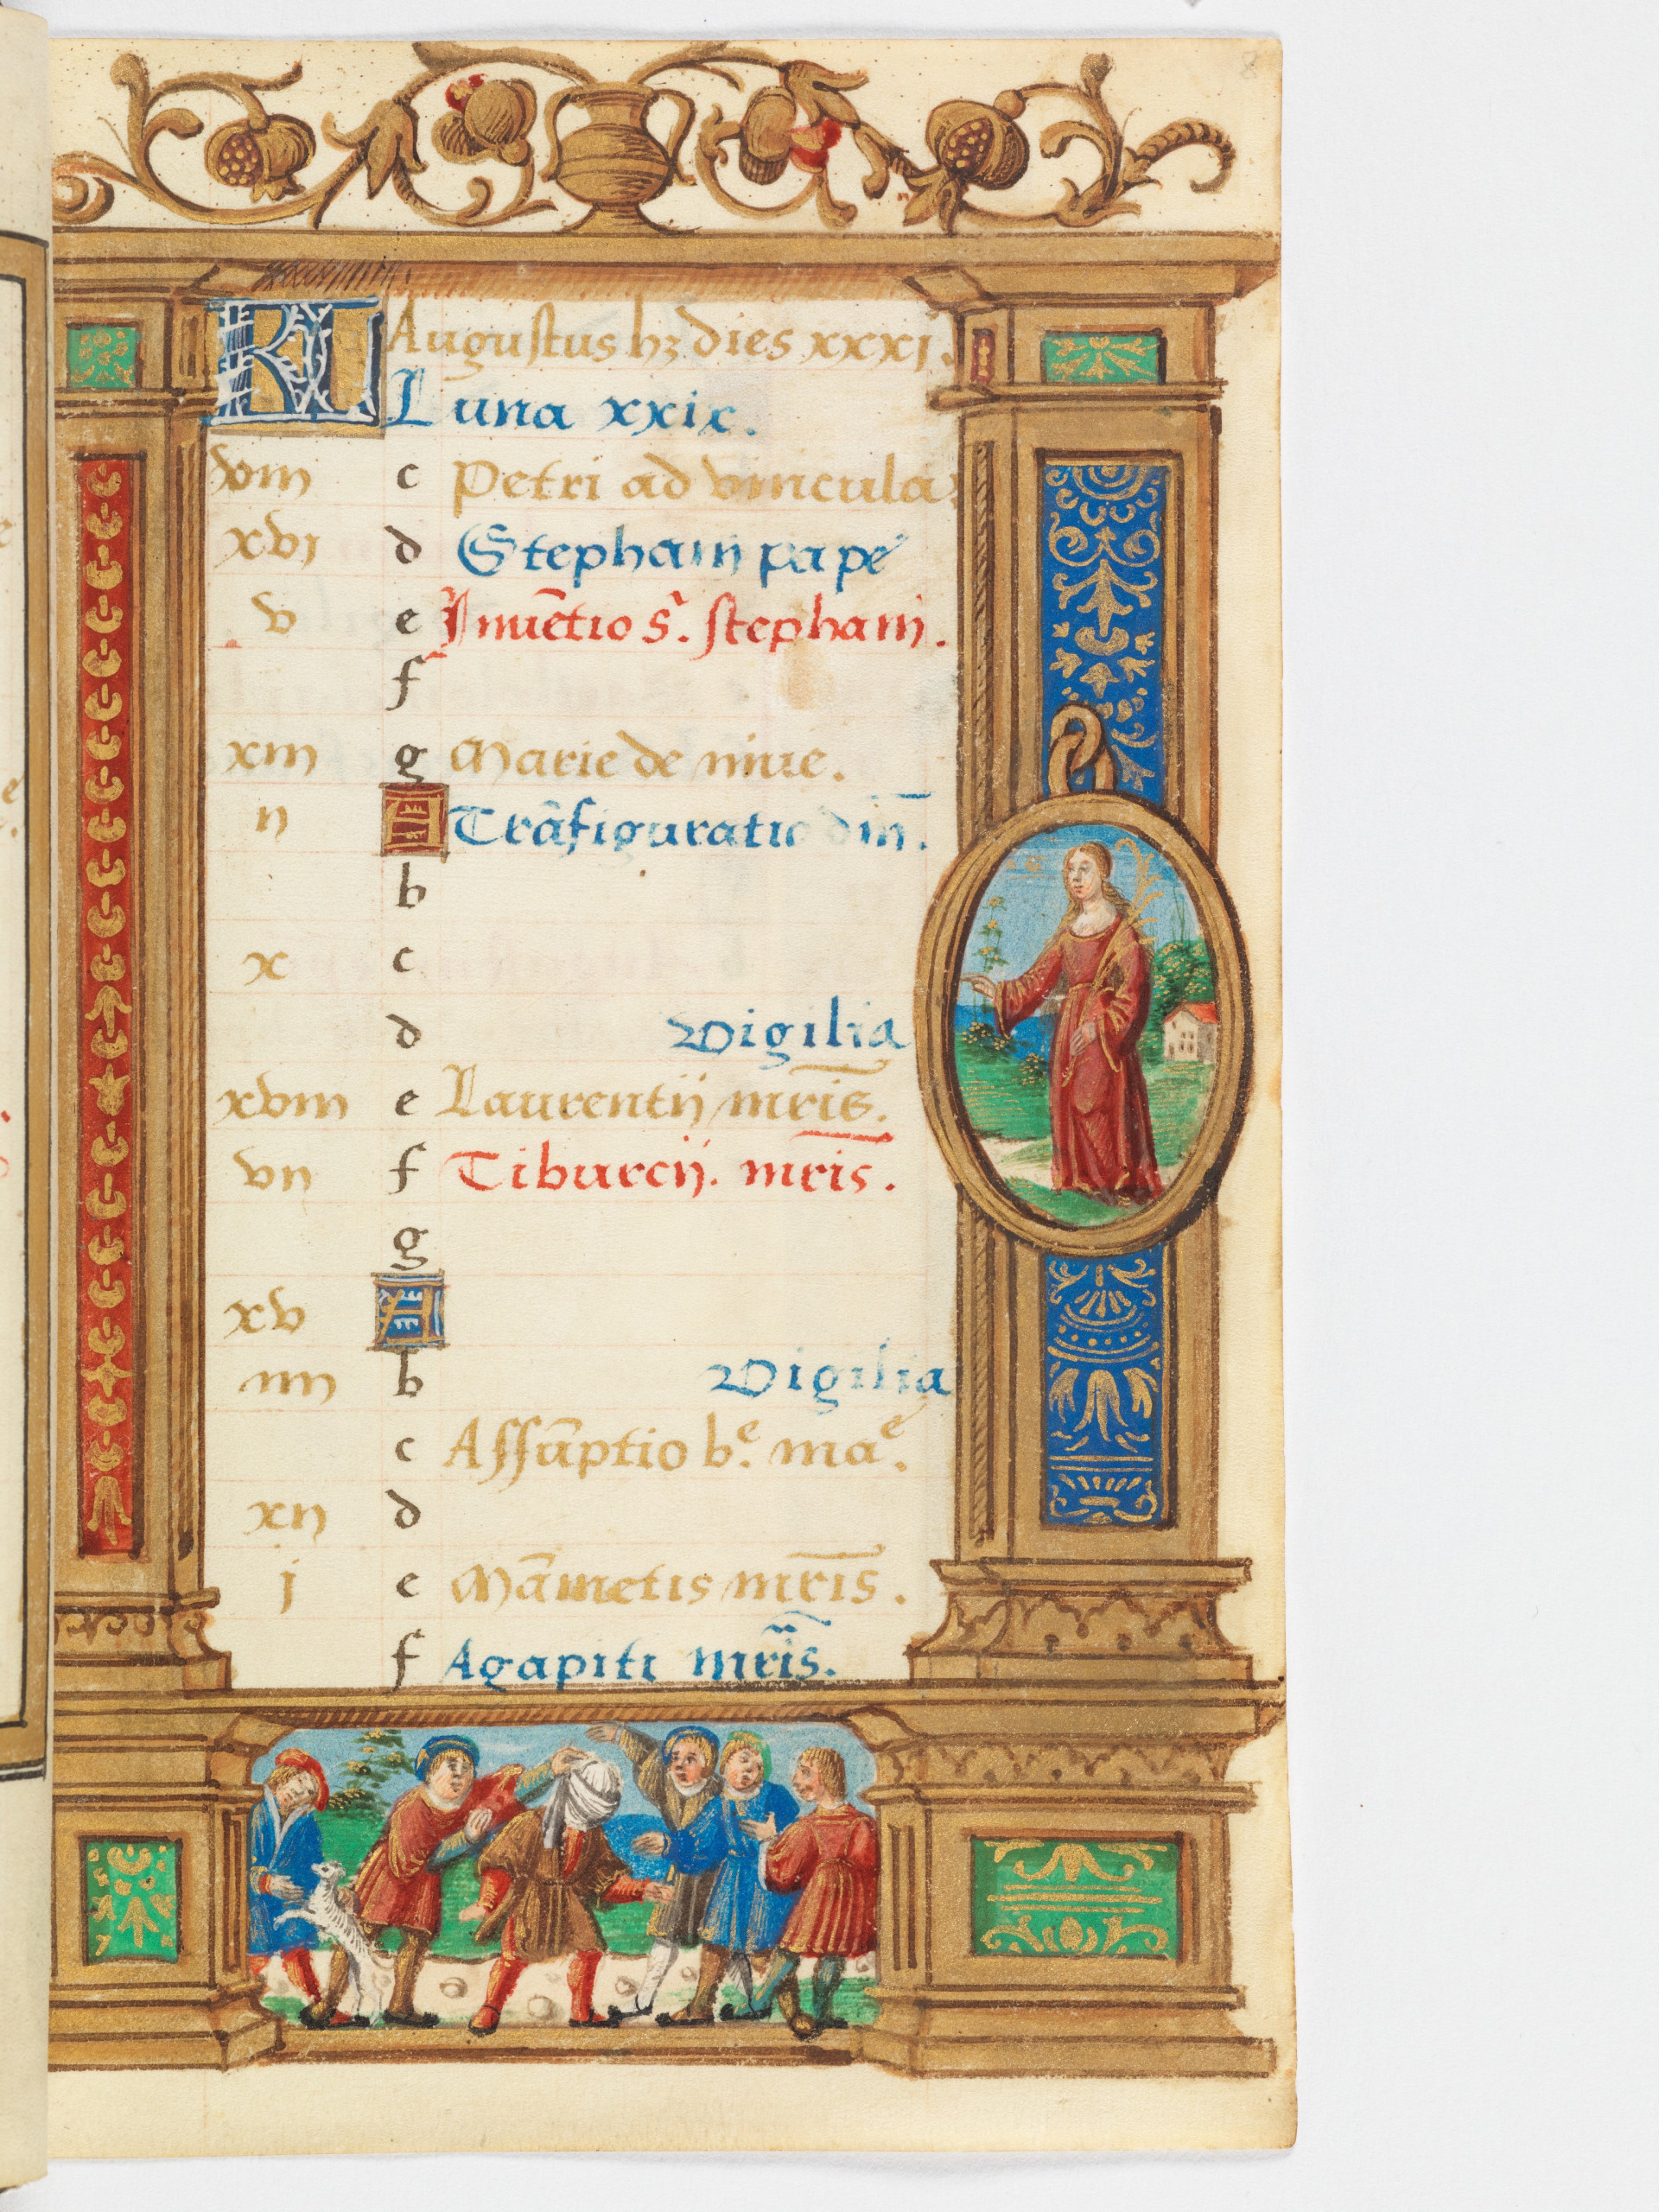 8
KL Augustus hʒ dies xxxj.
Luna xxix.
viii c Petri ad vincula.
xvj d Stephani pape
v e Inuētio s̄. stephani.
f
xiii g Marie de niue.
ii A Trāsfiguratio dn̄i.
b
x c
d Vigilia
xviii e Laurentij mr̄is.
vii f Tiburcij. mr̄is.
g
xv A
iiii b Vigilia
c Assūptio bᵉ. maᵉ.
xii d
j e Māmetis mr̄is.
f Agapiti mr̄is.